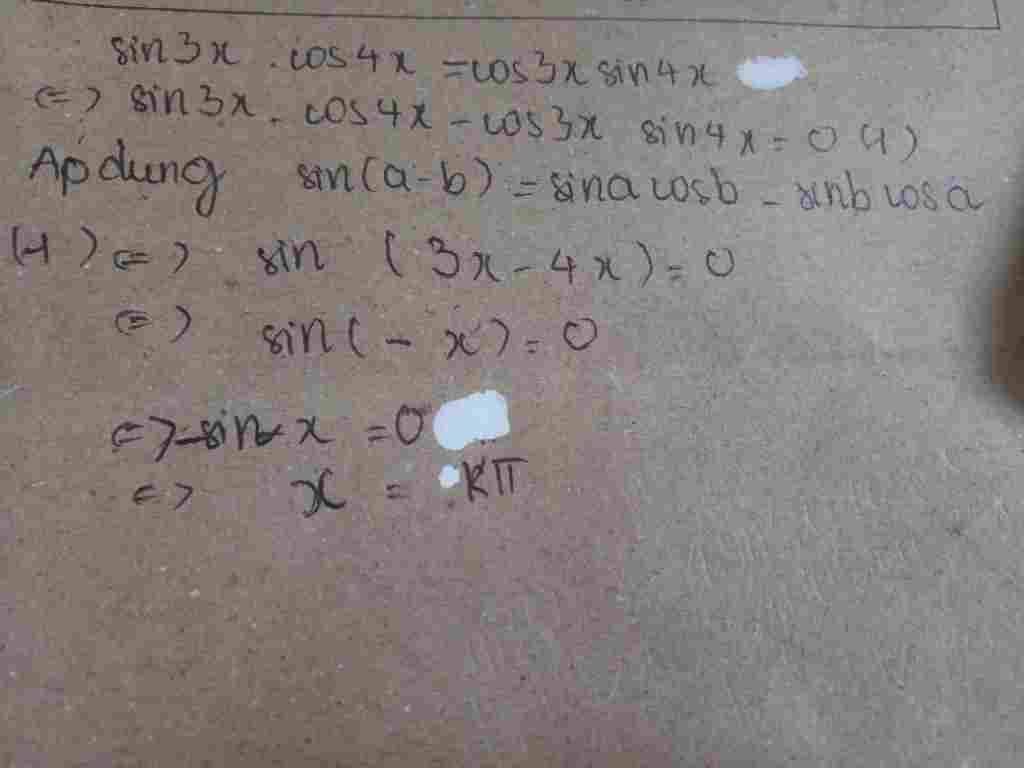 sin3x . cos4x = cos3x sin4x
<=> sin3x . cos4x - cos3x sin4x = 0 (1)
Áp dụng sin(a-b) = sina cosb - sinb cosa
(1) <=> sin (3x - 4x) = 0
<=> sin(-x) = 0
<=> -sin x = 0
<=> x = kπ